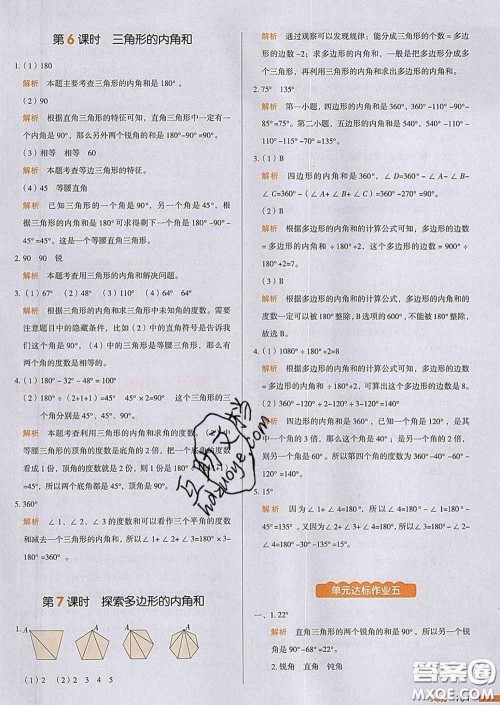 第6课时 三角形的内角和
1.(1)180
解析 本题主要考查三角形的内角和是180°。
(2)90
解析 根据直角三角形的特征可知，直角三角形中一定有一
个内角是90°，那么另外两个锐角的和是180°-90°=90°。
(3)相等 相等 60
解析 本题考查等边三角形的特征。
(4)45 等腰直角
解析 已知三角形的一个角是90°，另一个角是45°，根据
三角形的内角和是180°可求得剩下一个角是180°-90°
-45°=45°。这是一个等腰直角三角形。
2.90 90 锐
解析 本题考查用三角形的内角和解决问题。
3.(1)67° (2)48° (3)18° (4)64°
解析 根据三角形内角和求三角形中未知角的度数，需要
注意题目中的隐藏条件，比如(2)中的直角符号是告诉
我们这个角是90°，(4)中的三角形是等腰三角形，那么有
两个角的度数是相等的。
4.(1)180°-32°-48°=100°
(2)180°÷(2+1+1)=45° 45°×2=90° 这个三角形的三
个角分别是45°、45°、90°。
解析 本题考查利用三角形的内角和求角的度数。(2)中
看成1份，顶角的度数就是2份，则1份是180°÷
=45°，所以两个底角都是45°，顶角是90°。
5.360°
解析 ∠1、∠2、∠3的度数和可以看作三个平角的度数
和减去一个三角形的内角和，所以∠1+∠2+∠3=180°×
3-180°=360°。
第7课时 探索多边形的内角和
1.
(1)2 (2)2 3 4 5
解析 通过观察可以发现规律：能分成三角形的个数=多边
形的边数-2；求多边形的内角和，一般是把多边形分成多
个三角形，再利用三角形的内角和求出多边形的内角和。
2.75° 135°
解析 第一小题，四边形的内角和是360°，360°-110°-90°
-85°=75°。第二小题，五边形的内角和是540°，540°-110°
3.(1)B
解析 四边形的内角和是360°，∠D=360°-∠A-∠B-
∠C=360°-(∠A+∠B+∠C)=360°-270°=90°。
(2)B
解析 根据多边形的内角和计算公式可知，多边形的边数
=多边形的内角和÷180°+2，这个多边形的边数=900°÷
180°+2=7。
(3)B
解析 根据多边形的内角和的计算公式，多边形的内角和的
度数一定可以被180°整除，B选项的600°，不能被180°整
除，故选B。
4.(1)1080°÷180°+2=8
解析 根据多边形的内角和计算公式可知，多边形的边数
=多边形的内角和÷180°+2。
5.15°
∠1=15°。
单元达标作业五
一、1.22°
解析 直角三角形的两个锐角的和是90°，所以另一个锐角
是90°-68°=22°。
2.锐角 直角 钝角
互助文档
huzuoye.com
答案圈
MXQE.COM